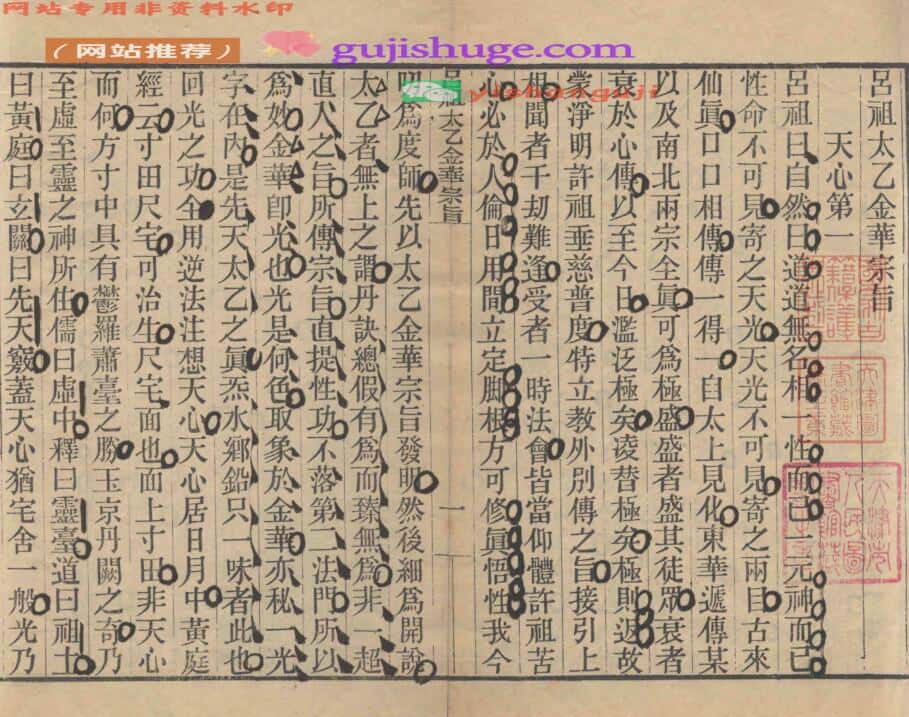 网站专用非资料水印
（网站推荐）
gujishuge.com
yizhanguji
呂祖太乙金華宗旨
天心第一
呂祖曰自然曰道道無名相一性而已一元神而已
性命不可見寄之天光天光不可見寄之兩目古來
仙眞口口相傳傳一得一自太上見化東華遞傳某
以及南北兩宗全眞可爲極盛盛者盛其徒眾衰者
衰於心傳以至今日濫泛極矣凌替極矣極則返故
蒙淨明許祖垂慈普度特立教外別傳之旨接引上
根聞者千劫難逢受者一時法會皆當仰體許祖苦
心必於人倫日用間立定脚根方可修眞悟性我今
呂祖太乙金華宗旨
一
叨爲度師先以太乙金華宗旨發明然後細爲開說
太乙者無上之謂丹訣總假有爲而臻無爲非一超
直入之旨所傳宗旨直提性功不落第二法門所以
爲妙金華卽光也光是何色取象於金華亦秘一光
字在內是先天太乙之眞炁水鄉鉛只一味者此也
回光之功全用逆法注想天心天心居日月中黃庭
經云寸田尺宅可治生尺宅面也面上寸田非天心
而何方寸中具有鬱羅蕭臺之勝玉京丹闕之奇乃
至虛至靈之神所住儒曰虛中釋曰靈臺道曰祖土
曰黃庭曰玄關曰先天竅蓋天心猶宅舍一般光乃